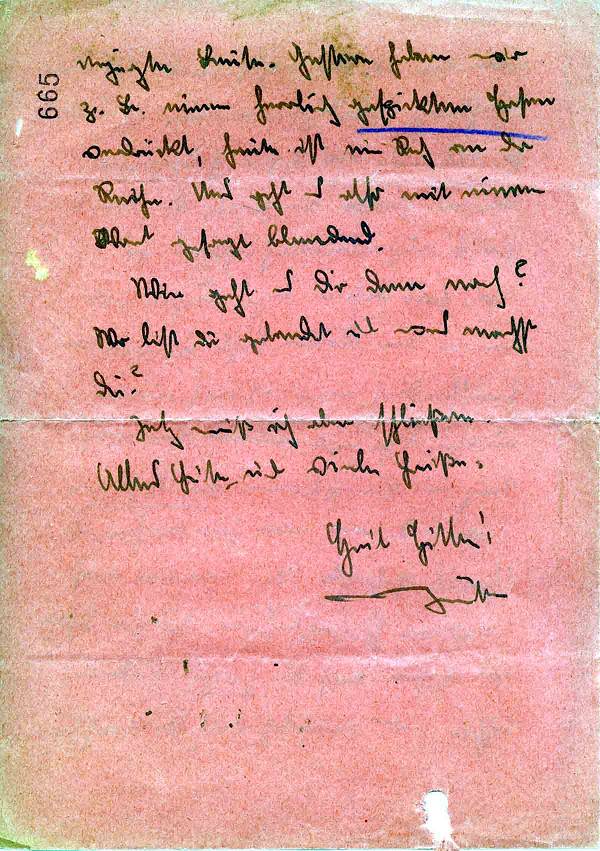 665
vergnügte Leute. Gestern haben wir
z. B. einen herrlich gespickten Hasen
verdrückt, heute ist ein Reh an der
Reihe. Uns geht es also mit einem
Wort gesagt blendend.
Wie geht es dir denn noch?
Wo bist du gelandet u. was machst
Du?
Jetzt muß ich aber schließen.
Alles Gute und viele Grüße.
Heil Hitler!